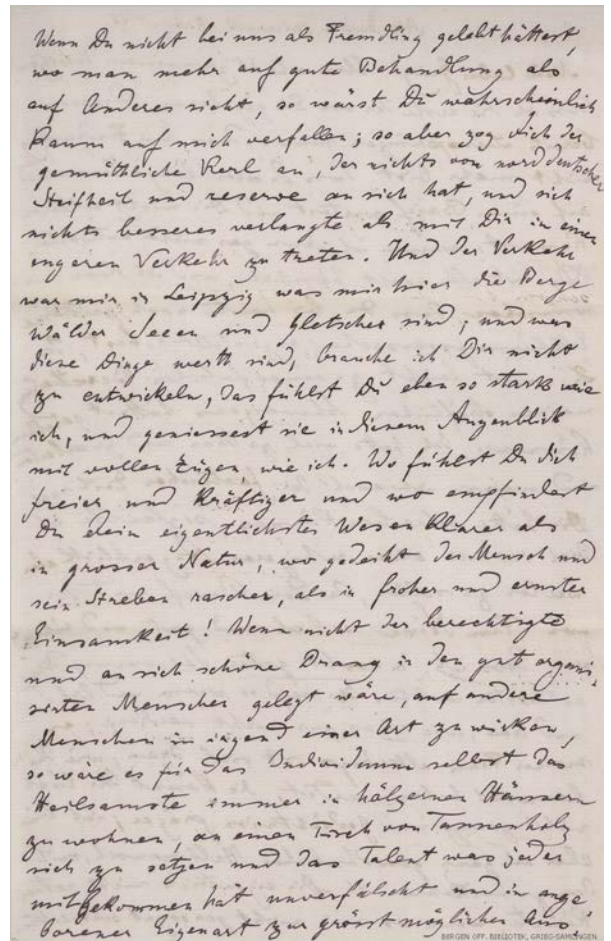 Wenn Du nicht bei uns als Fremdling gelebt hättest,
wo man mehr auf gute Behandlung als
auf Anderes sieht, so wärst Du wahrscheinlich
kaum auf mich verfallen; so aber zog Dich der
gemüthliche Kerl an, der nichts von norddeutscher
Steifheit und reserve an sich hat, und sich
nichts besseres verlangte als mit Dir in einen
engeren Verkehr zu treten. Und der Verkehr
war mir in Leipzig was mir hier die Berge
Wälder Seeen und Gletscher sind; und was
diese Dinge werth sind, brauche ich Dir nicht
zu entwickeln, das fühlst Du eben so stark wie
ich, und geniessest sie in diesem Augenblick
mit vollen Zügen, wie ich. Wo fühlst Du Dich
freier und kräftiger und wo empfindest
Du Dein eigentlichstes Wesen klarer als
in grosser Natur, wo gedeiht der Mensch und
sein Streben rascher, als in froher und ernster
Einsamkeit! Wenn nicht der berechtigte
und an sich schöne Drang in den gut organi-
sirten Menschen gelegt wäre, auf andere
Menschen in irgend einer Art zu wirken,
so wäre es für das Individuum selbst das
Heilsamste immer in hölzernen Häusern
zu wohnen, an einen Tisch von Tannenholz
sich zu setzen und das Talent was jeder
mitbekommen hat unverfälscht und in ange
borener Eigenart zur grösst möglichen Aus-
BERGEN OFF. BIBLIOTEK, GRIEG-SAMLINGEN